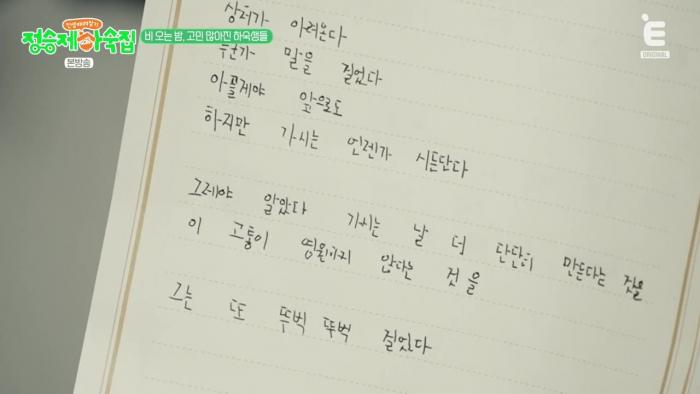 인생때려잡기
정승제 하숙집
본방송
비 오는 밤, 고민 많아진 하숙생들
E
ORIGINAL
상처가 아려온다
누군가 말을 걸었다
아플게야 앞으로도
하지만 가시는 언젠가 시든단다
그제야 알았다 가시는 날 더 단단히 만든다는 것을
이 고통이 영원하지 않다는 것을
그는 또 뚜벅 뚜벅 걸었다